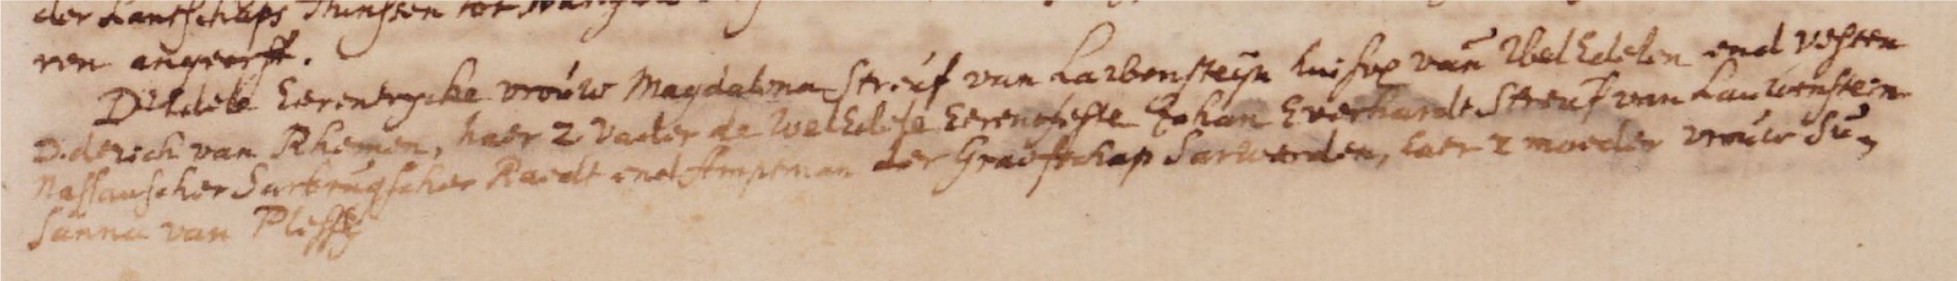 der Lantschaps
ren angeerft.
D'Edele Eerenrycke vrouw Magdalena Streuf van Lauwensteyn huisvr van Wel Edelen end Vesten
Diderich van Rhemen, haer 2 Vader de Wel Edele Eerenfeste Johan Everhardt Streuf van Lauwenstein
Nassauscher Sarbrugscher Raedt end Amptman der Graefschap Sarwerden, haer 2 moeder vrouw Su,
sanna van Pless